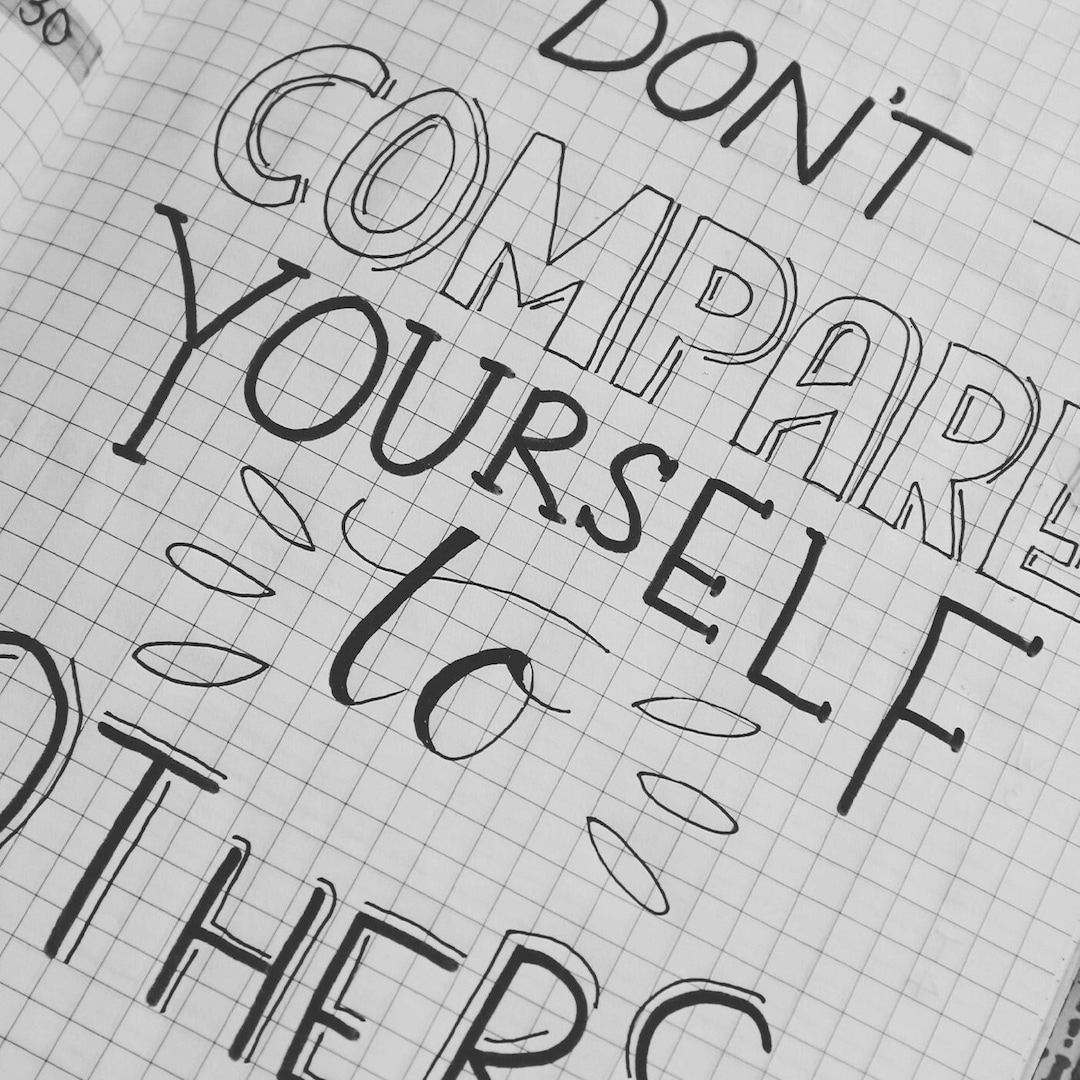 30
DON'T
COMPARE
YOURSELF
to
OTHERS